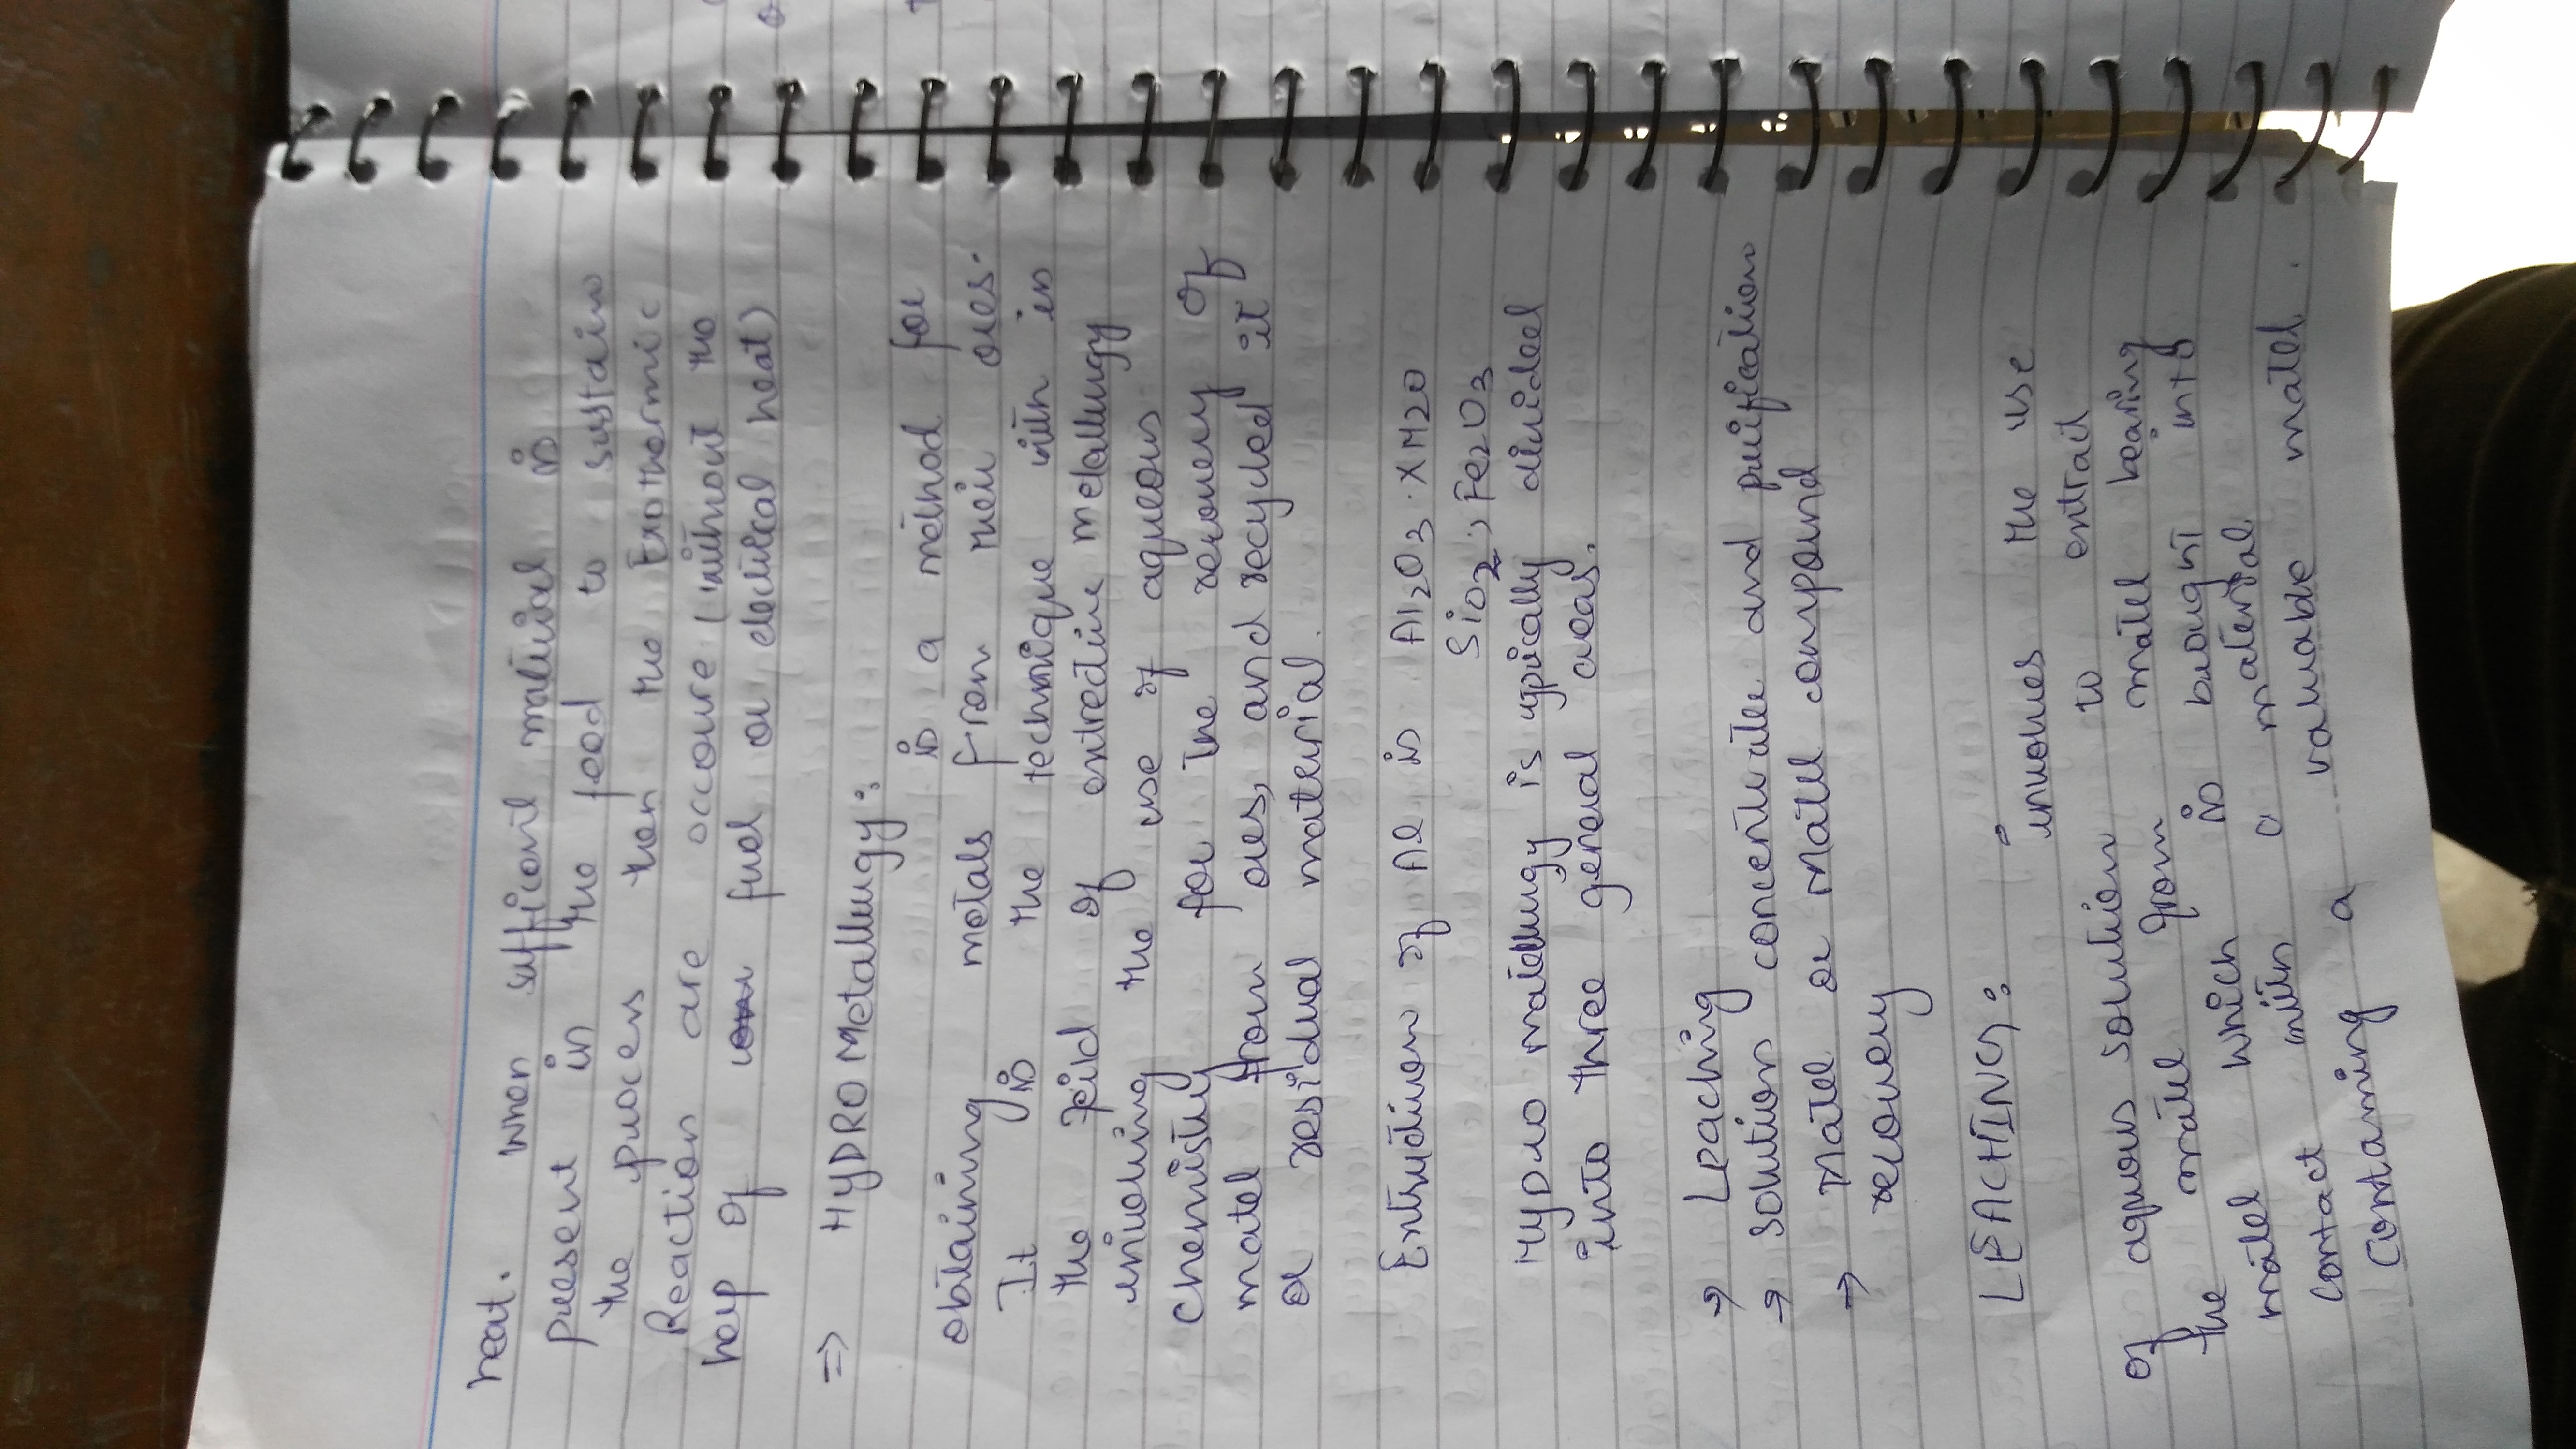 heat. When sufficenil material is
present in the feed to sustain
the process then the Exothermic
Reaction are occoure (without the
help of fuel or electical heat)
=> HYDRO Metallurgy:
is a method for
obtaining metals from their ores.
It is the technique with in
the feild of extrective metallurgy
involving the use of aqueous
chemistry for the recovery of
matel from ores, and recycled it
or residual material.
Extraction of Al is Al2O3 . XH20
SiO2; Fe2O3
Hydro matellurgy is typically divideed
into three general areas.
→ Leaching
→ solution concentrate and purification
→ Matel or Matel compound
recovery
LEACHING:-
involves the use
of aquous solution to extrait
the matel from matel bearing
matel which is brought into
contact with a material
containing a valuable matel.